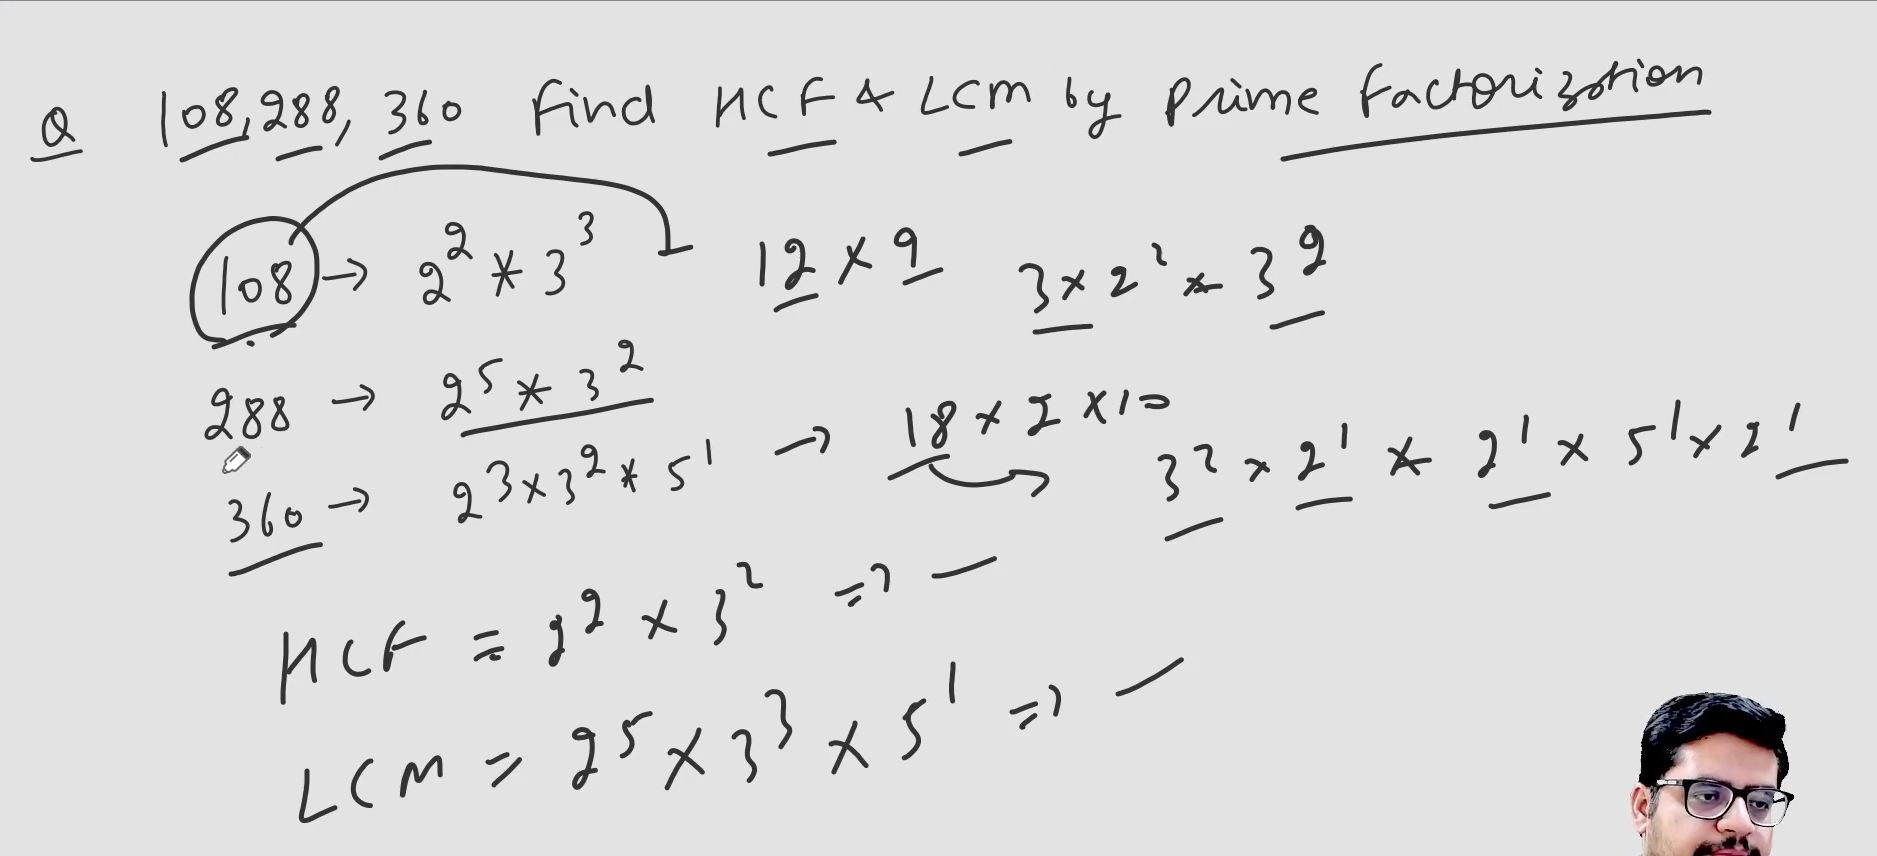 Q 108, 288, 360 Find HCF & LCM by Prime Factorization
108 → 2² * 3³ 12 × 9 3 × 2² × 3²
288 → 2⁵ * 3²
360 → 2³ × 3² * 5¹ → 18 × 2 × 10 3² × 2¹ * 2¹ × 5¹ × 2¹
HCF = 2² × 3² ⇒ —
LCM = 2⁵ × 3³ × 5¹ ⇒ —